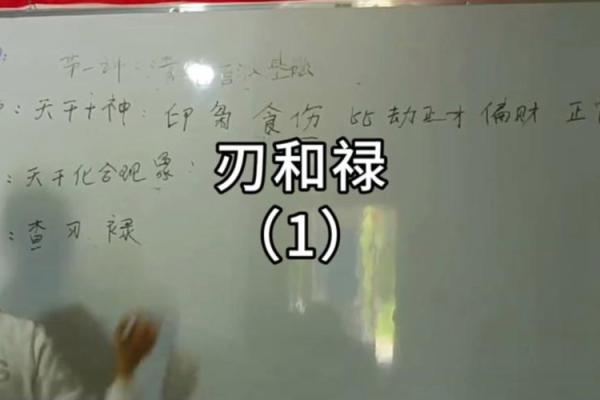 第一讲:
:天干十神:印枭食伤 比劫正才偏财 正
:天干化合现象:
:查刃禄
刃和禄
(1)